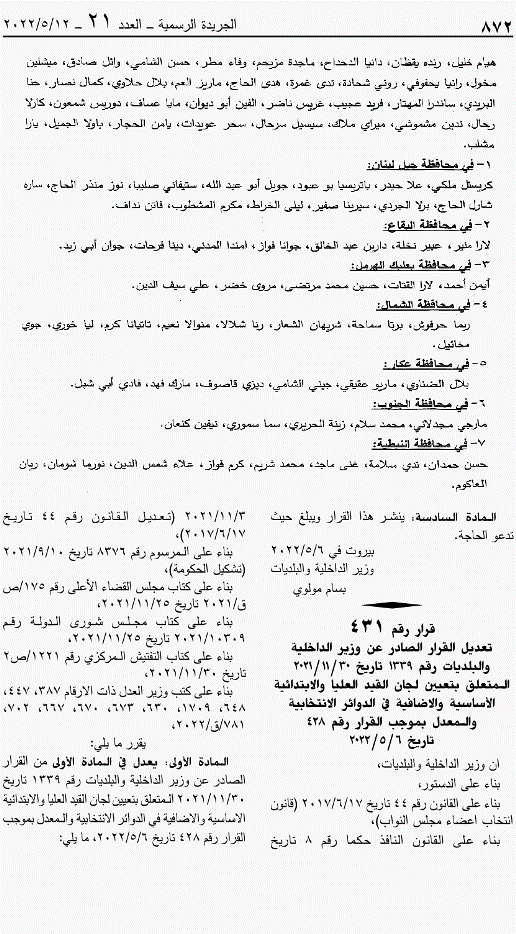 ٨٧٢
الجريدة الرسمية ــ العدد ٢١ ــ ٢٠٢٢/٥/١٢
هيام خليل، رنده يقظان، دانيا الدحداح، ماجدة مزيحم، وفاء مطر، حسن الشامي، وائل صادق، ميشلين
مخول، رانيا يحفوفي، روني شحادة، ندى غمرة، هدى الحاج، ماريز العم، بلال حلاوي، كمال نصار، حنا
البريدي، ساندرا المهتار، فريد عجيب، غريس ناضر، الفين أبو ديوان، مايا عساف، دوريس شمعون، كارلا
رحال، ندين مشموشي، ميراي ملاك، سيسيل سرحال، سحر عويدات، يامن الحجار، باولا الجميل، يارا
مشلب.
١- في محافظة جبل لبنان:
كريستل ملكي، علا حيدر، باتريسيا بو عبود، جويل أبو عبد الله، ستيفاني صليبا، نوز منذر الحاج، ساره
شارل الحاج، برلا الجردي، سيرينا صفير، ليلى الخراط، مكرم المشطوب، فاتن نداف.
٢- في محافظة البقاع:
لارا منير، عبير نخلة، دارين عبد الخالق، جوانا فواز، امندا المدني، دينا فرحات، جوان أبي زيد.
٣- في محافظة بعلبك الهرمل:
أيمن أحمد، لارا القتات، حسين محمد مرتضى، مروى خضر، علي سيف الدين.
٤- في محافظة الشمال:
ريما حرفوش، برتا سماحة، شريهان الشعار، رنا شلالا، منوالا نعيم، تاتيانا كرم، ليا خوري، جوي
مخائيل.
٥- في محافظة عكار:
بلال الضناوي، ماريو عقيقي، جيني الشامي، ديزي قاصوف، مارك فهد، فادي أبي شبل.
٦- في محافظة الجنوب:
مارجي مجدلاني، محمد سلام، زينة الحريري، سما سموري، نيفين كنعان.
٧- في محافظة النبطية:
حسن حمدان، ندي سلامة، غنى ماجد، محمد شريم، كرم فواز، علاء شمس الدين، نورما شومان، ريان
العاكوم.
المادة السادسة: ينشر هذا القرار ويبلغ حيث
تدعو الحاجة.
بيروت في ٢٠٢٢/٥/٦
وزير الداخلية والبلديات
بسام مولوي
قرار رقم ٤٣١
تعديل القرار الصادر عن وزير الداخلية
والبلديات رقم ١٣٣٩ تاريخ ٢٠٢١/١١/٣٠
المتعلق بتعيين لجان القيد العليا والابتدائية
الأساسية والاضافية في الدوائر الانتخابية
والمعدل بموجب القرار رقم ٤٢٨
تاريخ ٢٠٢٢/٥/٦
ان وزير الداخلية والبلديات،
بناء على الدستور،
بناء على القانون رقم ٤٤ تاريخ ٢٠١٧/٦/١٧ (قانون
انتخاب اعضاء مجلس النواب)،
بناء على القانون النافذ حكما رقم ٨ تاريخ
٢٠٢١/١١/٣ (تعديل القانون رقم ٤٤ تاريخ
٢٠١٧/٦/١٧)،
بناء على المرسوم رقم ٨٣٧٦ تاريخ ٢٠٢١/٩/١٠
(تشكيل الحكومة)،
بناء على كتاب مجلس القضاء الأعلى رقم ١٧٥/ص
ق/٢٠٢١ تاريخ ٢٠٢١/١١/٢٥،
بناء على كتاب مجلس شورى الدولة رقم
٢٠٢١/١٠٣٠٩ تاريخ ٢٠٢١/١١/٢٥،
بناء على كتاب التفتيش المركزي رقم ١٢٢١/ص٢
تاريخ ٢٠٢١/١١/٣٠،
بناء على كتب وزير العدل ذات الارقام ٣٨٧، ٤٤٧،
٦٤٨، ١٧٠٩، ٦٣٠، ٦٧٣، ٦٧٠، ٦٦٧، ٧٠٢،
٧٨١/ق/٢٠٢٢،
يقرر ما يلي:
المادة الأولى: يعدل في المادة الأولى من القرار
الصادر عن وزير الداخلية والبلديات رقم ١٣٣٩ تاريخ
٢٠٢١/١١/٣٠ المتعلق بتعيين لجان القيد العليا والابتدائية
الاساسية والاضافية في الدوائر الانتخابية والمعدل بموجب
القرار رقم ٤٢٨ تاريخ ٢٠٢٢/٥/٦، ما يلي: